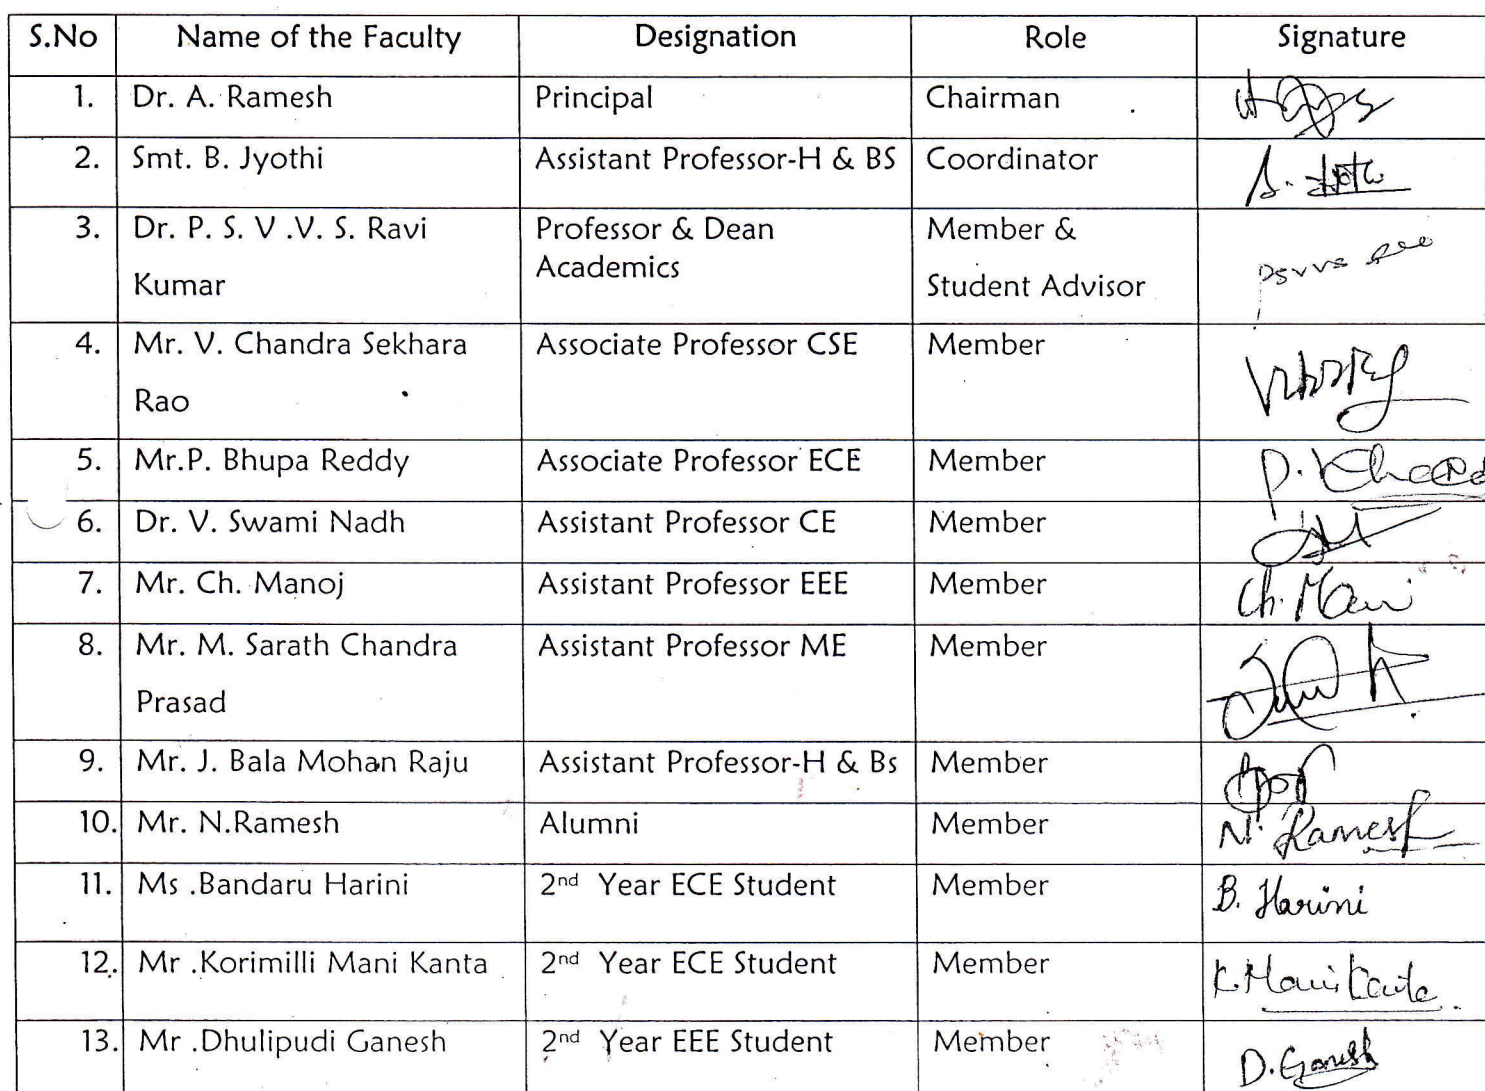 S.No Name of the Faculty Designation Role Signature
1. Dr. A. Ramesh Principal Chairman
2. Smt. B. Jyothi Assistant Professor-H & BS Coordinator
3. Dr. P. S. V .V. S. Ravi Professor & Dean Member &
Kumar Academics Student Advisor
4. Mr. V. Chandra Sekhara Associate Professor CSE Member
Rao
5. Mr.P. Bhupa Reddy Associate Professor ECE Member
6. Dr. V. Swami Nadh Assistant Professor CE Member
7. Mr. Ch. Manoj Assistant Professor EEE Member
8. Mr. M. Sarath Chandra Assistant Professor ME Member
Prasad
9. Mr. J. Bala Mohan Raju Assistant Professor-H & Bs Member
10. Mr. N.Ramesh Alumni Member N. Ramesh
11. Ms .Bandaru Harini 2nd Year ECE Student Member B. Harini
12. Mr .Korimilli Mani Kanta 2nd Year ECE Student Member K.ManiKanta
13. Mr .Dhulipudi Ganesh 2nd Year EEE Student Member D.Ganesh